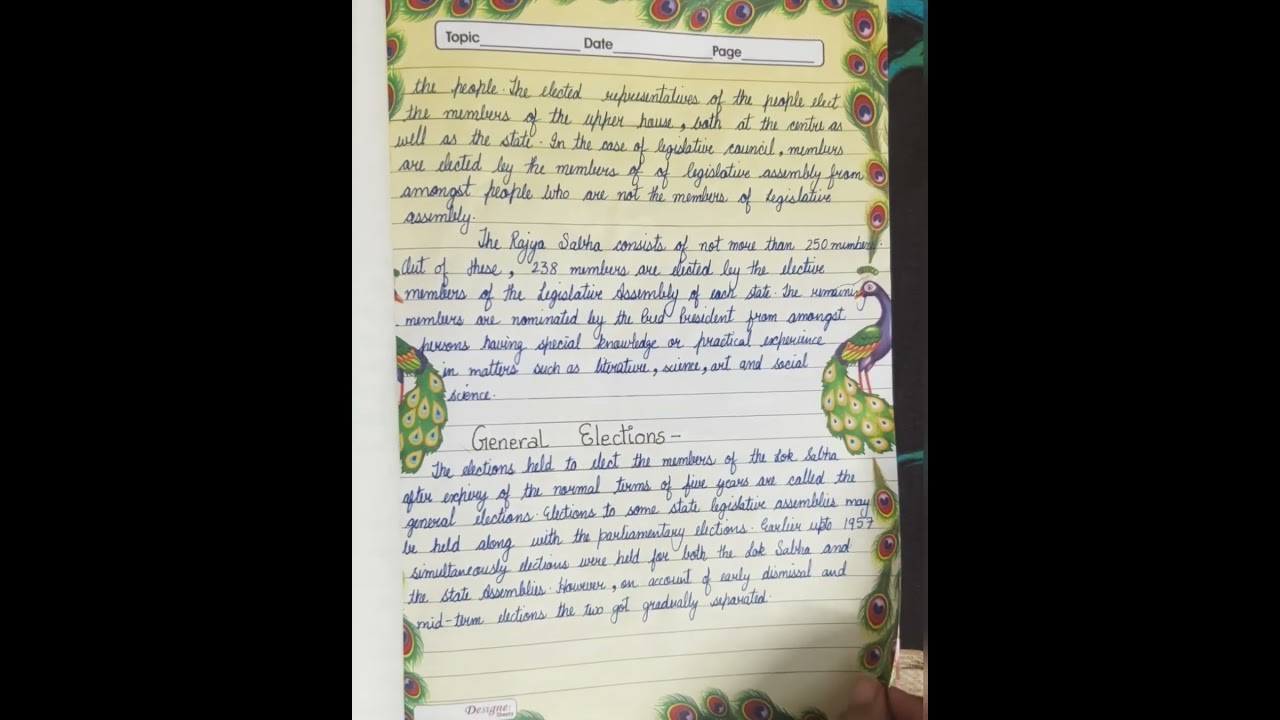 Topic Date Page
the people. The elected representatives of the people elect
the members of the upper house, both at the centre as
well as the state. In the case of legislative council, members
are elected by the members of of legislative assembly from
amongst people who are not the members of Legislative
assembly.
The Rajya Sabha consists of not more than 250 members.
Out of these, 238 members are elected by the elective
members of the Legislative Assembly of each state. The remaining
members are nominated by the President from amongst
persons having special knowledge or practical experience
in matters such as literature, science, art and social
science.
General Elections-
The elections held to elect the members of the Lok Sabha
after expiry of the normal terms of five years are called the
general elections. Elections to some state legislative assemblies may
be held along with the parliamentary elections. Earlier upto 1957
simultaneously elections were held for both the Lok Sabha and
the State Assemblies. However, on account of early dismissal and
mid-term elections the two got gradually separated.
Designer Sheets